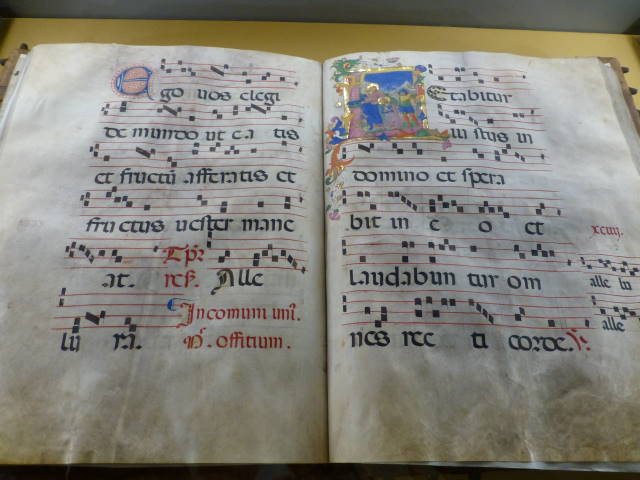 Ego uos elegi
de mundo ut ea tis
et fructū afferatis et
fructus uester mane
at. Tp̄r
resr̄. Alle
lu ia.
In comuni uniꝰ.
offitium.
Etabitur
iu stus in
domino et spera
bit in e o et
laudabun tur om
nes rec ti corde.
alle lu
alle